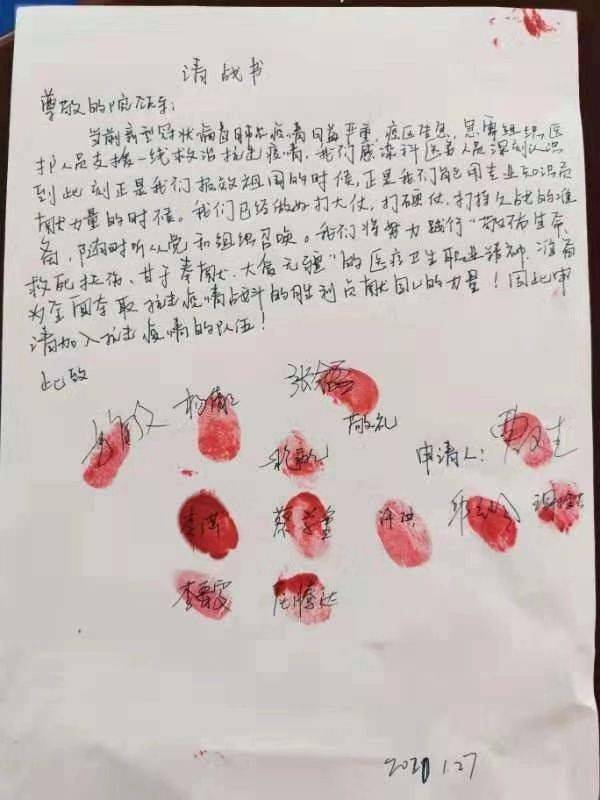 请战书
尊敬的院领导:
当前新型冠状病毒肺炎疫情日益严重,疫区告急,急需组织医
护人员支援一线救治抗击疫情,我们感染科医务人员深刻认识
到此刻正是我们报效祖国的时候,正是我们能用专业知识贡
献力量的时候。我们已经做好打大仗,打硬仗,打持久战的准
备,随时听从党和组织召唤。我们将努力践行“敬佑生命、
救死扶伤、甘于奉献、大爱无疆”的医疗卫生职业精神,
为全面夺取抗击疫情战斗的胜利贡献自己的力量!因此申
请加入抗击疫情的队伍!
此致
敬礼
申请人:
李洪
蔡
许洪
李
周
1.27